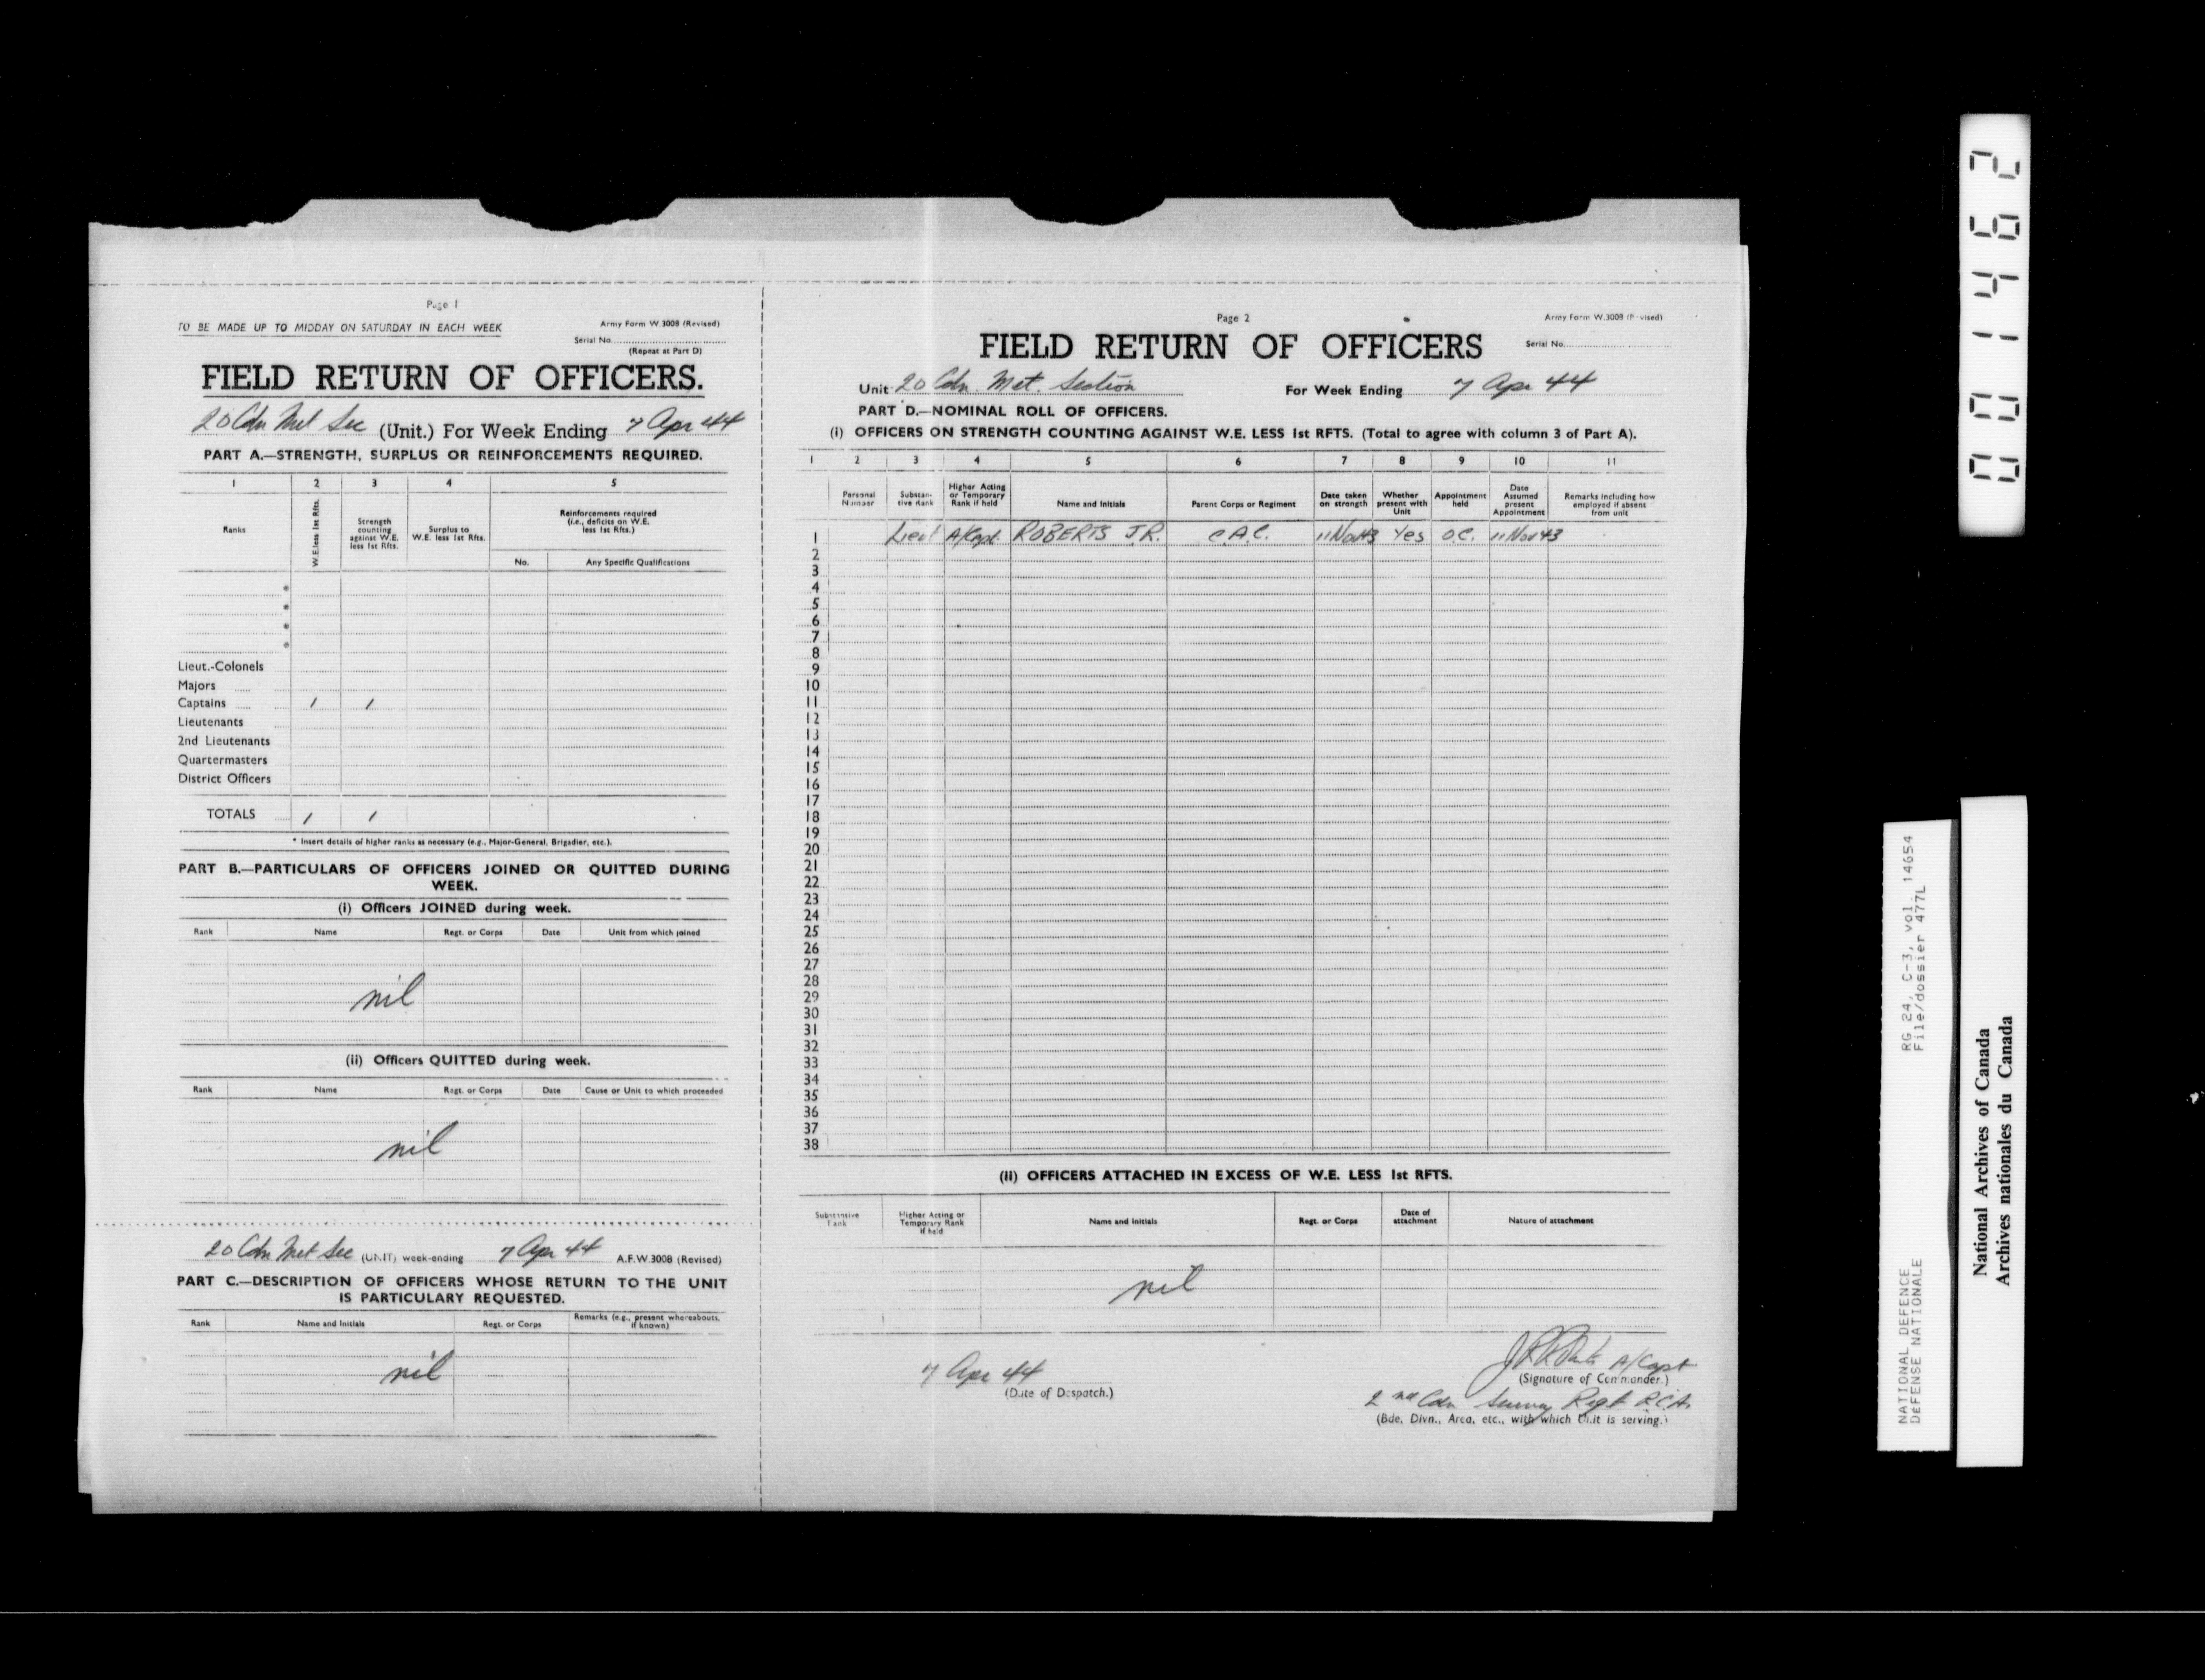 Page 1
TO BE MADE UP TO MIDDAY ON SATURDAY IN EACH WEEK
Army Form W.3008 (Revised)
Serial No.
(Repeat at Part D)
FIELD RETURN OF OFFICERS.
20 Cdn Met Sec (Unit.) For Week Ending 7 Apr 44
PART A.—STRENGTH, SURPLUS OR REINFORCEMENTS REQUIRED.
1 2 3 4 5
Ranks
W.E. less 1st Rfts.
Strength counting against W.E. less 1st Rfts.
Surplus to W.E. less 1st Rfts.
Reinforcements required (i.e., deficits on W.E. less 1st Rfts.)
No. Any Specific Qualifications
*
*
*
*
Lieut.-Colonels
Majors
Captains 1 1
Lieutenants
2nd Lieutenants
Quartermasters
District Officers
TOTALS 1 1
* Insert details of higher ranks as necessary (e.g., Major-General, Brigadier, etc.).
PART B.—PARTICULARS OF OFFICERS JOINED OR QUITTED DURING
WEEK.
(i) Officers JOINED during week.
Rank Name Regt. or Corps Date Unit from which joined
nil
(ii) Officers QUITTED during week.
Rank Name Regt. or Corps Date Cause or Unit to which proceeded
nil
20 Cdn Met Sec (UNIT) week-ending 7 Apr 44 A.F.W.3008 (Revised)
PART C.—DESCRIPTION OF OFFICERS WHOSE RETURN TO THE UNIT
IS PARTICULARY REQUESTED.
Rank Name and Initials Regt. or Corps Remarks (e.g., present whereabouts, if known)
nil
Page 2
Army Form W.3008 (Revised)
FIELD RETURN OF OFFICERS
Serial No.
Unit 20 Cdn. Met. Section For Week Ending 7 Apr 44
PART D.—NOMINAL ROLL OF OFFICERS.
(i) OFFICERS ON STRENGTH COUNTING AGAINST W.E. LESS 1st RFTS. (Total to agree with column 3 of Part A).
1 2 3 4 5 6 7 8 9 10 11
Personal Number
Substantive Rank
Higher Acting or Temporary Rank if held
Name and Initials
Parent Corps or Regiment
Date taken on strength
Whether present with Unit
Appointment held
Date Assumed present Appointment
Remarks including how employed if absent from unit
1 Lieut A/Capt. ROBERTS J.R. C.A.C. 11 Nov 43 Yes O.C. 11 Nov 43
2
3
4
5
6
7
8
9
10
11
12
13
14
15
16
17
18
19
20
21
22
23
24
25
26
27
28
29
30
31
32
33
34
35
36
37
38
(ii) OFFICERS ATTACHED IN EXCESS OF W.E. LESS 1st RFTS.
Substantive Rank
Higher Acting or Temporary Rank if held
Name and Initials
Regt. or Corps
Date of attachment
Nature of attachment
nil
7 Apr 44
(Date of Despatch.)
A/Capt
(Signature of Commander.)
2nd Cdn Survey Regt R.C.A.
(Bde, Divn., Area, etc., with which Unit is serving.)
001462
NATIONAL DEFENCE RG 24, C-3, vol. 14654
DÉFENSE NATIONALE File/dossier 477L
National Archives of Canada
Archives nationales du Canada